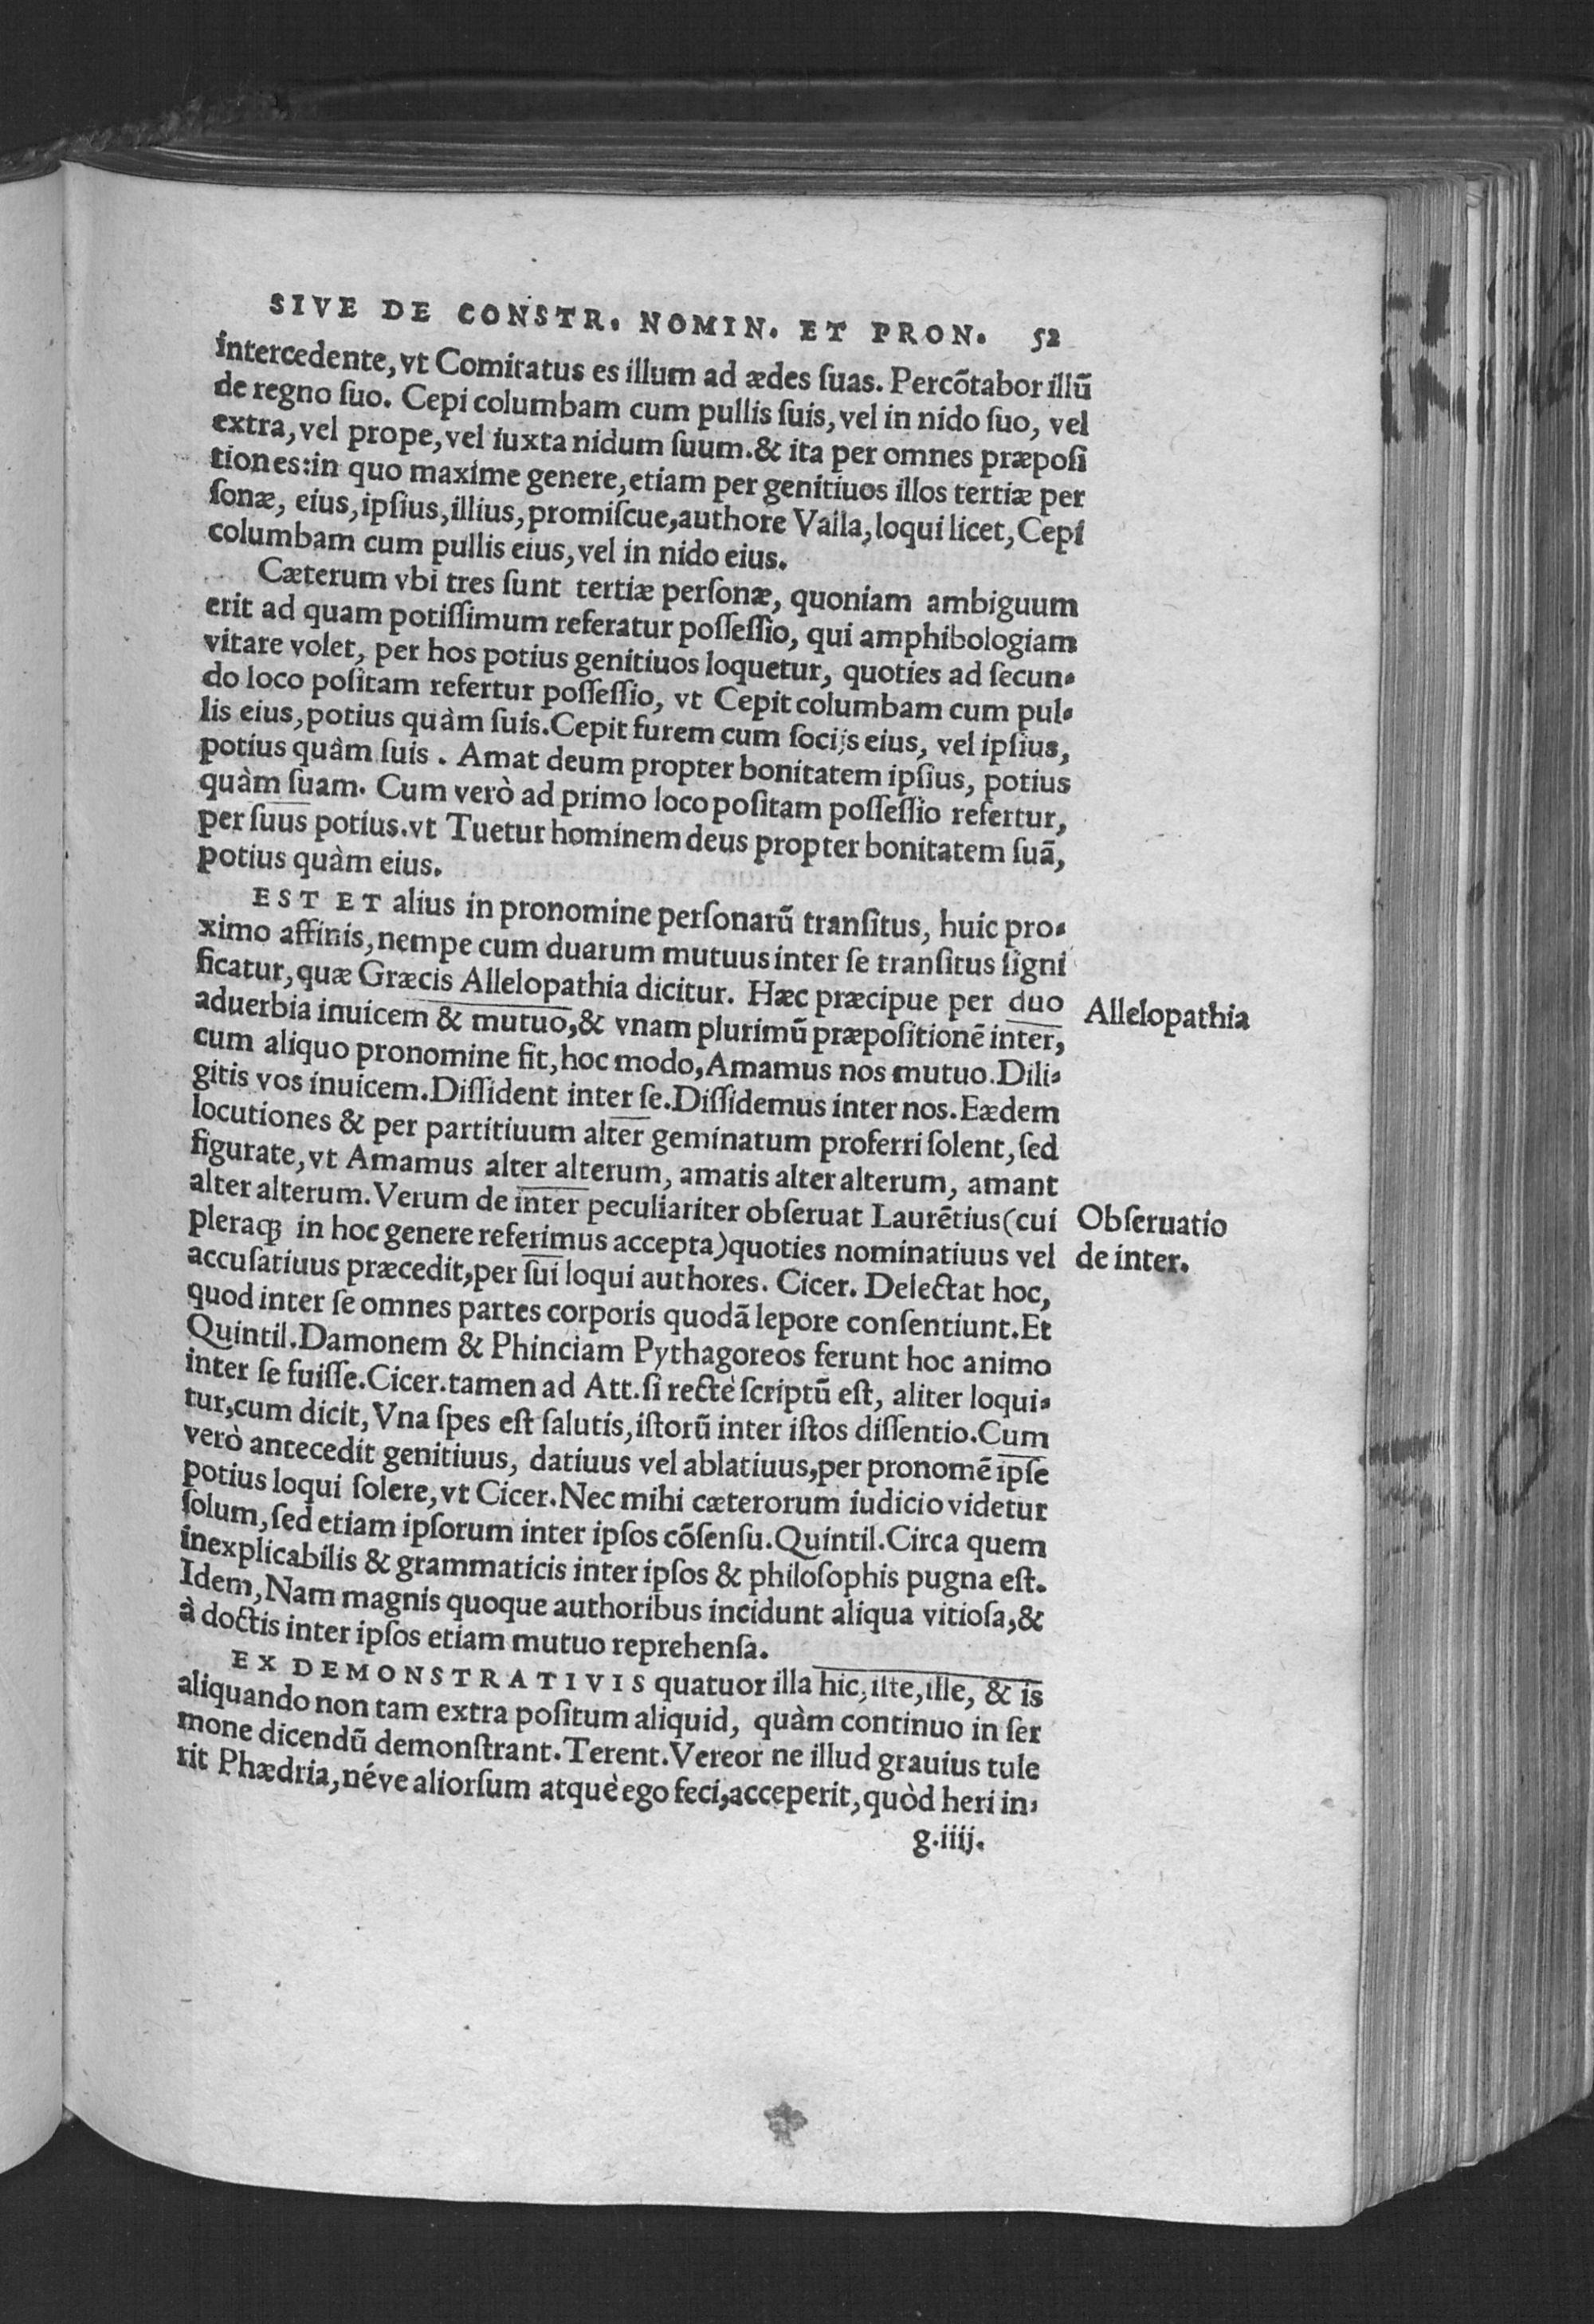 SIVE DE CONSTR. NOMIN. ET PRON. 52
intercedente, vt Comitatus es illum ad ædes ſuas. Percõtabor illũ
de regno ſuo. Cepi columbam cum pullis ſuis, vel in nido ſuo, vel
extra, vel prope, vel iuxta nidum ſuum. & ita per omnes præpoſi
tiones: in quo maxime genere, etiam per genitiuos illos tertiæ per
ſonæ, eius, ipſius, illius, promiſcue, authore Valla, loqui licet, Cepi
columbam cum pullis eius, vel in nido eius.
Cæterum vbi tres ſunt tertiæ perſonæ, quoniam ambiguum
erit ad quam potiſſimum referatur poſſeſſio, qui amphibologiam
vitare volet, per hos potius genitiuos loquetur, quoties ad ſecun-
do loco poſitam refertur poſſeſſio, vt Cepit columbam cum pul-
lis eius, potius quàm ſuis. Cepit furem cum ſocijs eius, vel ipſius,
potius quàm ſuis. Amat deum propter bonitatem ipſius, potius
quàm ſuam. Cum verò ad primo loco poſitam poſſeſſio refertur,
per ſuus potius. vt Tuetur hominem deus propter bonitatem ſuã,
potius quàm eius.
EST ET alius in pronomine perſonarũ tranſitus, huic pro-
ximo affinis, nempe cum duarum mutuus inter ſe tranſitus ſigni
ficatur, quæ Græcis Allelopathia dicitur. Hæc præcipue per duo
Allelopathia
aduerbia inuicem & mutuo, & vnam plurimũ præpoſitionẽ inter,
cum aliquo pronomine fit, hoc modo, Amamus nos mutuo. Dili-
gitis vos inuicem. Diſſident inter ſe. Diſſidemus inter nos. Eædem
locutiones & per partitiuum alter geminatum proferri ſolent, ſed
figurate, vt Amamus alter alterum, amatis alter alterum, amant
alter alterum. Verum de inter peculiariter obſeruat Laurẽtius (cui
Obſeruatio
pleraqꝫ in hoc genere referimus accepta) quoties nominatiuus vel
de inter.
accuſatiuus præcedit, per ſui loqui authores. Cicer. Delectat hoc,
quod inter ſe omnes partes corporis quodã lepore conſentiunt. Et
Quintil. Damonem & Phinciam Pythagoreos ferunt hoc animo
inter ſe fuiſſe. Cicer. tamen ad Att. ſi rectè ſcriptũ eſt, aliter loqui-
tur, cum dicit, Vna ſpes eſt ſalutis, iſtorũ inter iſtos diſſentio. Cum
verò antecedit genitiuus, datiuus vel ablatiuus, per pronomẽ ipſe
potius loqui ſolere, vt Cicer. Nec mihi cæterorum iudicio videtur
ſolum, ſed etiam ipſorum inter ipſos cõſenſu. Quintil. Circa quem
inexplicabilis & grammaticis inter ipſos & philoſophis pugna eſt.
Idem, Nam magnis quoque authoribus incidunt aliqua vitioſa, &
à doctis inter ipſos etiam mutuo reprehenſa.
EX DEMONSTRATIVIS quatuor illa hic, iſte, ille, & is
aliquando non tam extra poſitum aliquid, quàm continuo in ſer
mone dicendũ demonſtrant. Terent. Vereor ne illud grauius tule
rit Phædria, néve aliorſum atquè ego feci, acceperit, quòd heri in-
g.iiij.